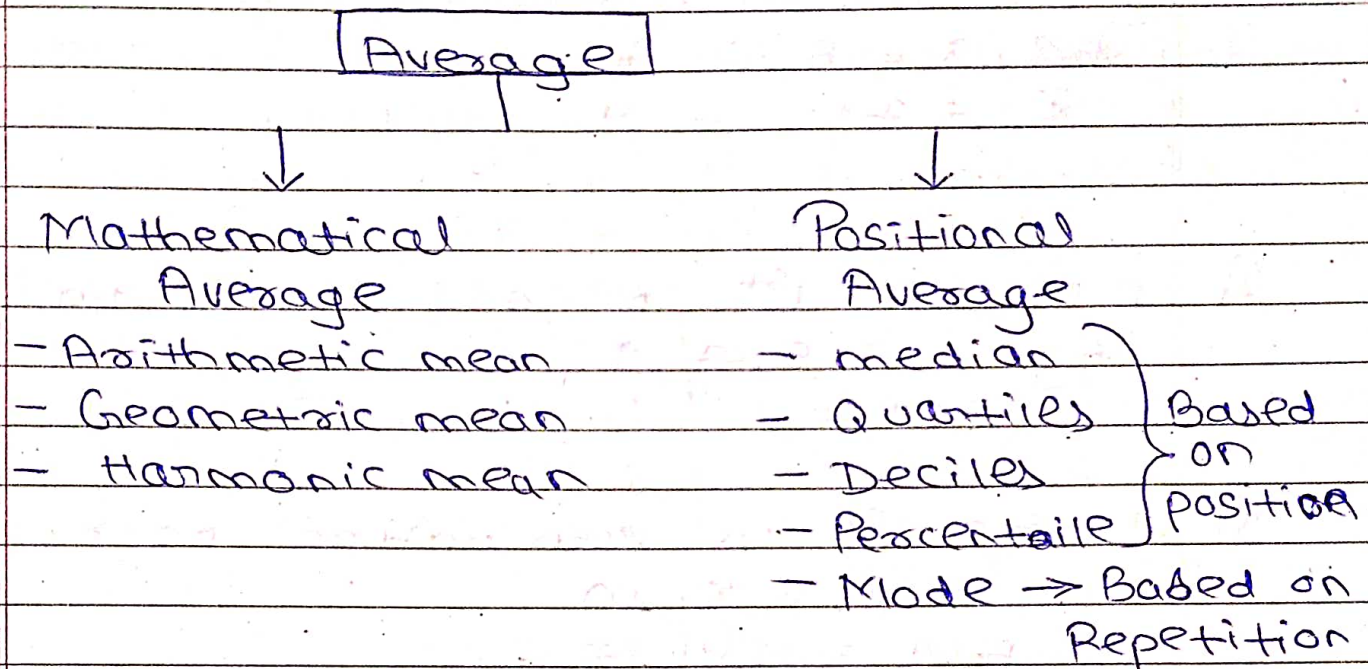 Average
Mathematical
Average
- Arithmetic mean
- Geometric mean
- Harmonic mean
Positional
Average
- median
- Quartiles
- Deciles
- Percentaile
Based
on
position
- Mode → Based on
Repetition